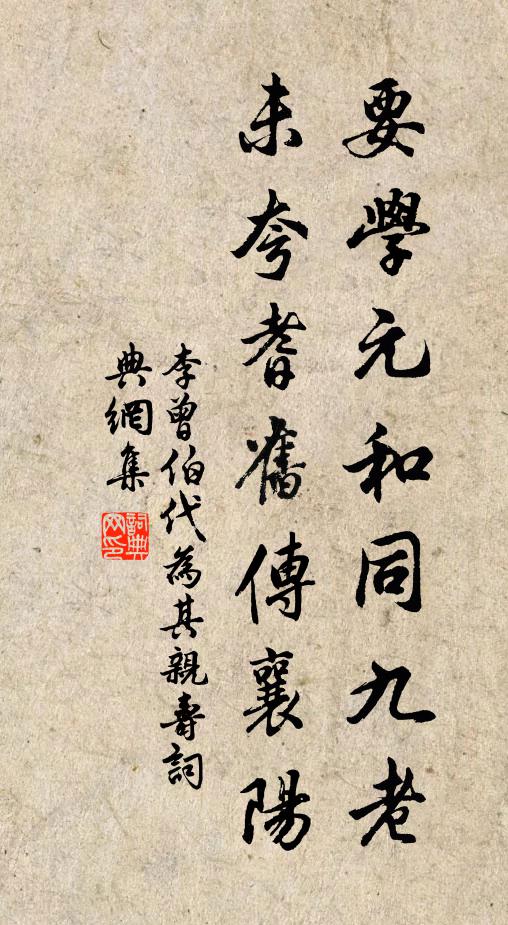 要學元和同九老
未夸耆舊傳襄陽
李曾伯代為其親壽詞
典網集
詞典網印